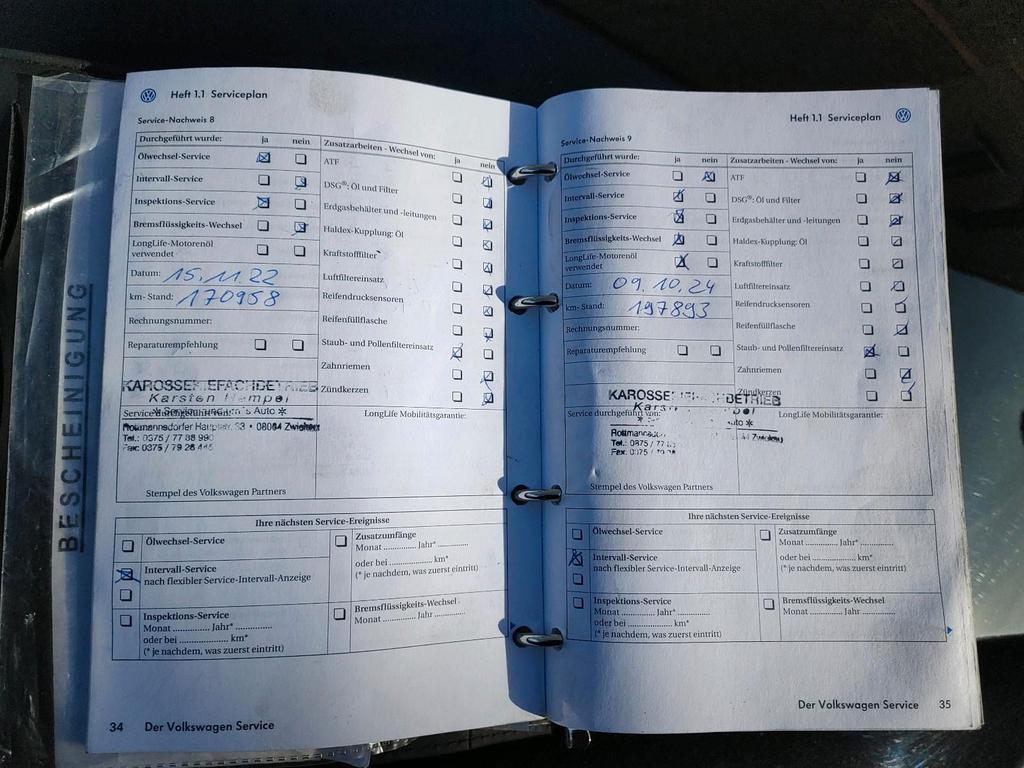 BESCHEINIGUNG
Heft 1.1 Serviceplan
Service-Nachweis 8
Durchgeführt wurde: ja nein
Ölwechsel-Service
Intervall-Service
Inspektions-Service
Bremsflüssigkeits-Wechsel
LongLife-Motorenöl
verwendet
Datum: 15.11.22
km- Stand: 170958
Rechnungsnummer:
Reparaturempfehlung
Zusatzarbeiten - Wechsel von: ja nein
ATF
DSG®: Öl und Filter
Erdgasbehälter und -leitungen
Haldex-Kupplung: Öl
Kraftstofffilter
Luftfiltereinsatz
Reifendrucksensoren
Reifenfüllflasche
Staub- und Pollenfiltereinsatz
Zahnriemen
Zündkerzen
KAROSSERIEFACHBETRIEB
Karsten Hempel
Service durchgeführt von:
Auto
Rottmannsdorfer Hauptstr. 33 • 08064 Zwickau
Tel.: 0375 / 77 88 990
Fax: 0375 / 79 28 445
LongLife Mobilitätsgarantie:
Stempel des Volkswagen Partners
Ihre nächsten Service-Ereignisse
Ölwechsel-Service
Intervall-Service
nach flexibler Service-Intervall-Anzeige
Inspektions-Service
Monat ............... Jahr* ...............
oder bei ....................... km*
(* je nachdem, was zuerst eintritt)
Zusatzumfänge
Monat ............... Jahr* ...............
oder bei ....................... km*
(* je nachdem, was zuerst eintritt)
Bremsflüssigkeits-Wechsel
Monat ............... Jahr ...............
34 Der Volkswagen Service
Heft 1.1 Serviceplan
Service-Nachweis 9
Durchgeführt wurde: ja nein
Ölwechsel-Service
Intervall-Service
Inspektions-Service
Bremsflüssigkeits-Wechsel
LongLife-Motorenöl
verwendet
Datum: 09.10.24
km- Stand: 197893
Rechnungsnummer:
Reparaturempfehlung
Zusatzarbeiten - Wechsel von: ja nein
ATF
DSG®: Öl und Filter
Erdgasbehälter und -leitungen
Haldex-Kupplung: Öl
Kraftstofffilter
Luftfiltereinsatz
Reifendrucksensoren
Reifenfüllflasche
Staub- und Pollenfiltereinsatz
Zahnriemen
Zündkerzen
Service durchgeführt von:
Zwickau
Tel.: 0375 / 77
Fax: 0375
LongLife Mobilitätsgarantie:
Stempel des Volkswagen Partners
Ihre nächsten Service-Ereignisse
Ölwechsel-Service
Intervall-Service
nach flexibler Service-Intervall-Anzeige
Inspektions-Service
Monat ............... Jahr* ...............
oder bei ....................... km*
(* je nachdem, was zuerst eintritt)
Zusatzumfänge
Monat ............... Jahr* ...............
oder bei ....................... km*
(* je nachdem, was zuerst eintritt)
Bremsflüssigkeits-Wechsel
Monat ............... Jahr ...............
Der Volkswagen Service 35